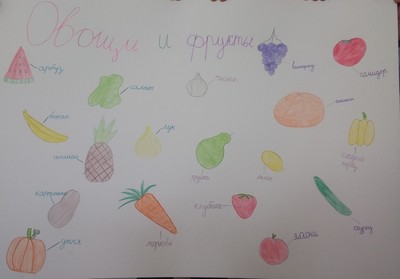 Овощи и фрукты
арбуз
салат
чеснок
виноград
помидор
банан
ананас
лук
груша
лимон
картошка
морковь
клубника
яблоко
огурец
тыква